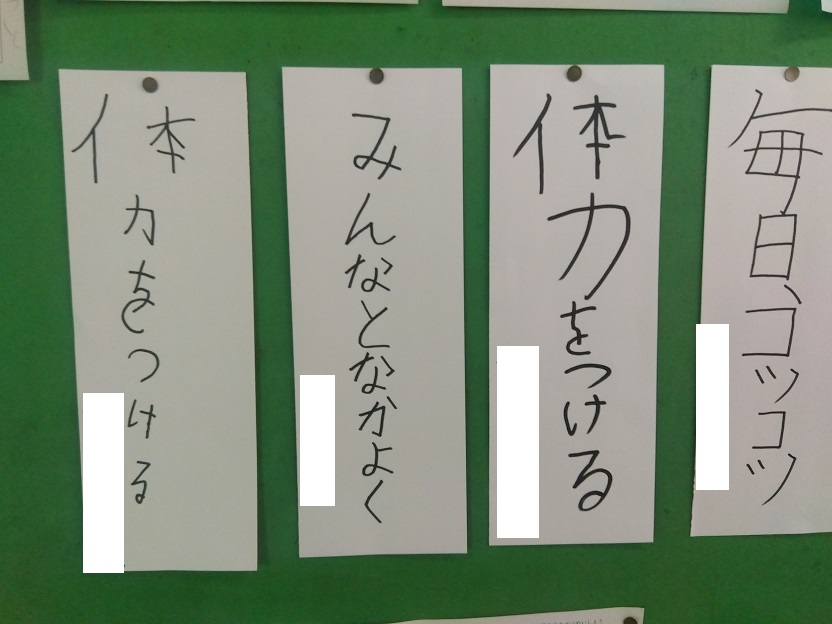 毎日、コツコツ
体力をつける
みんなとなかよく
体力をつける